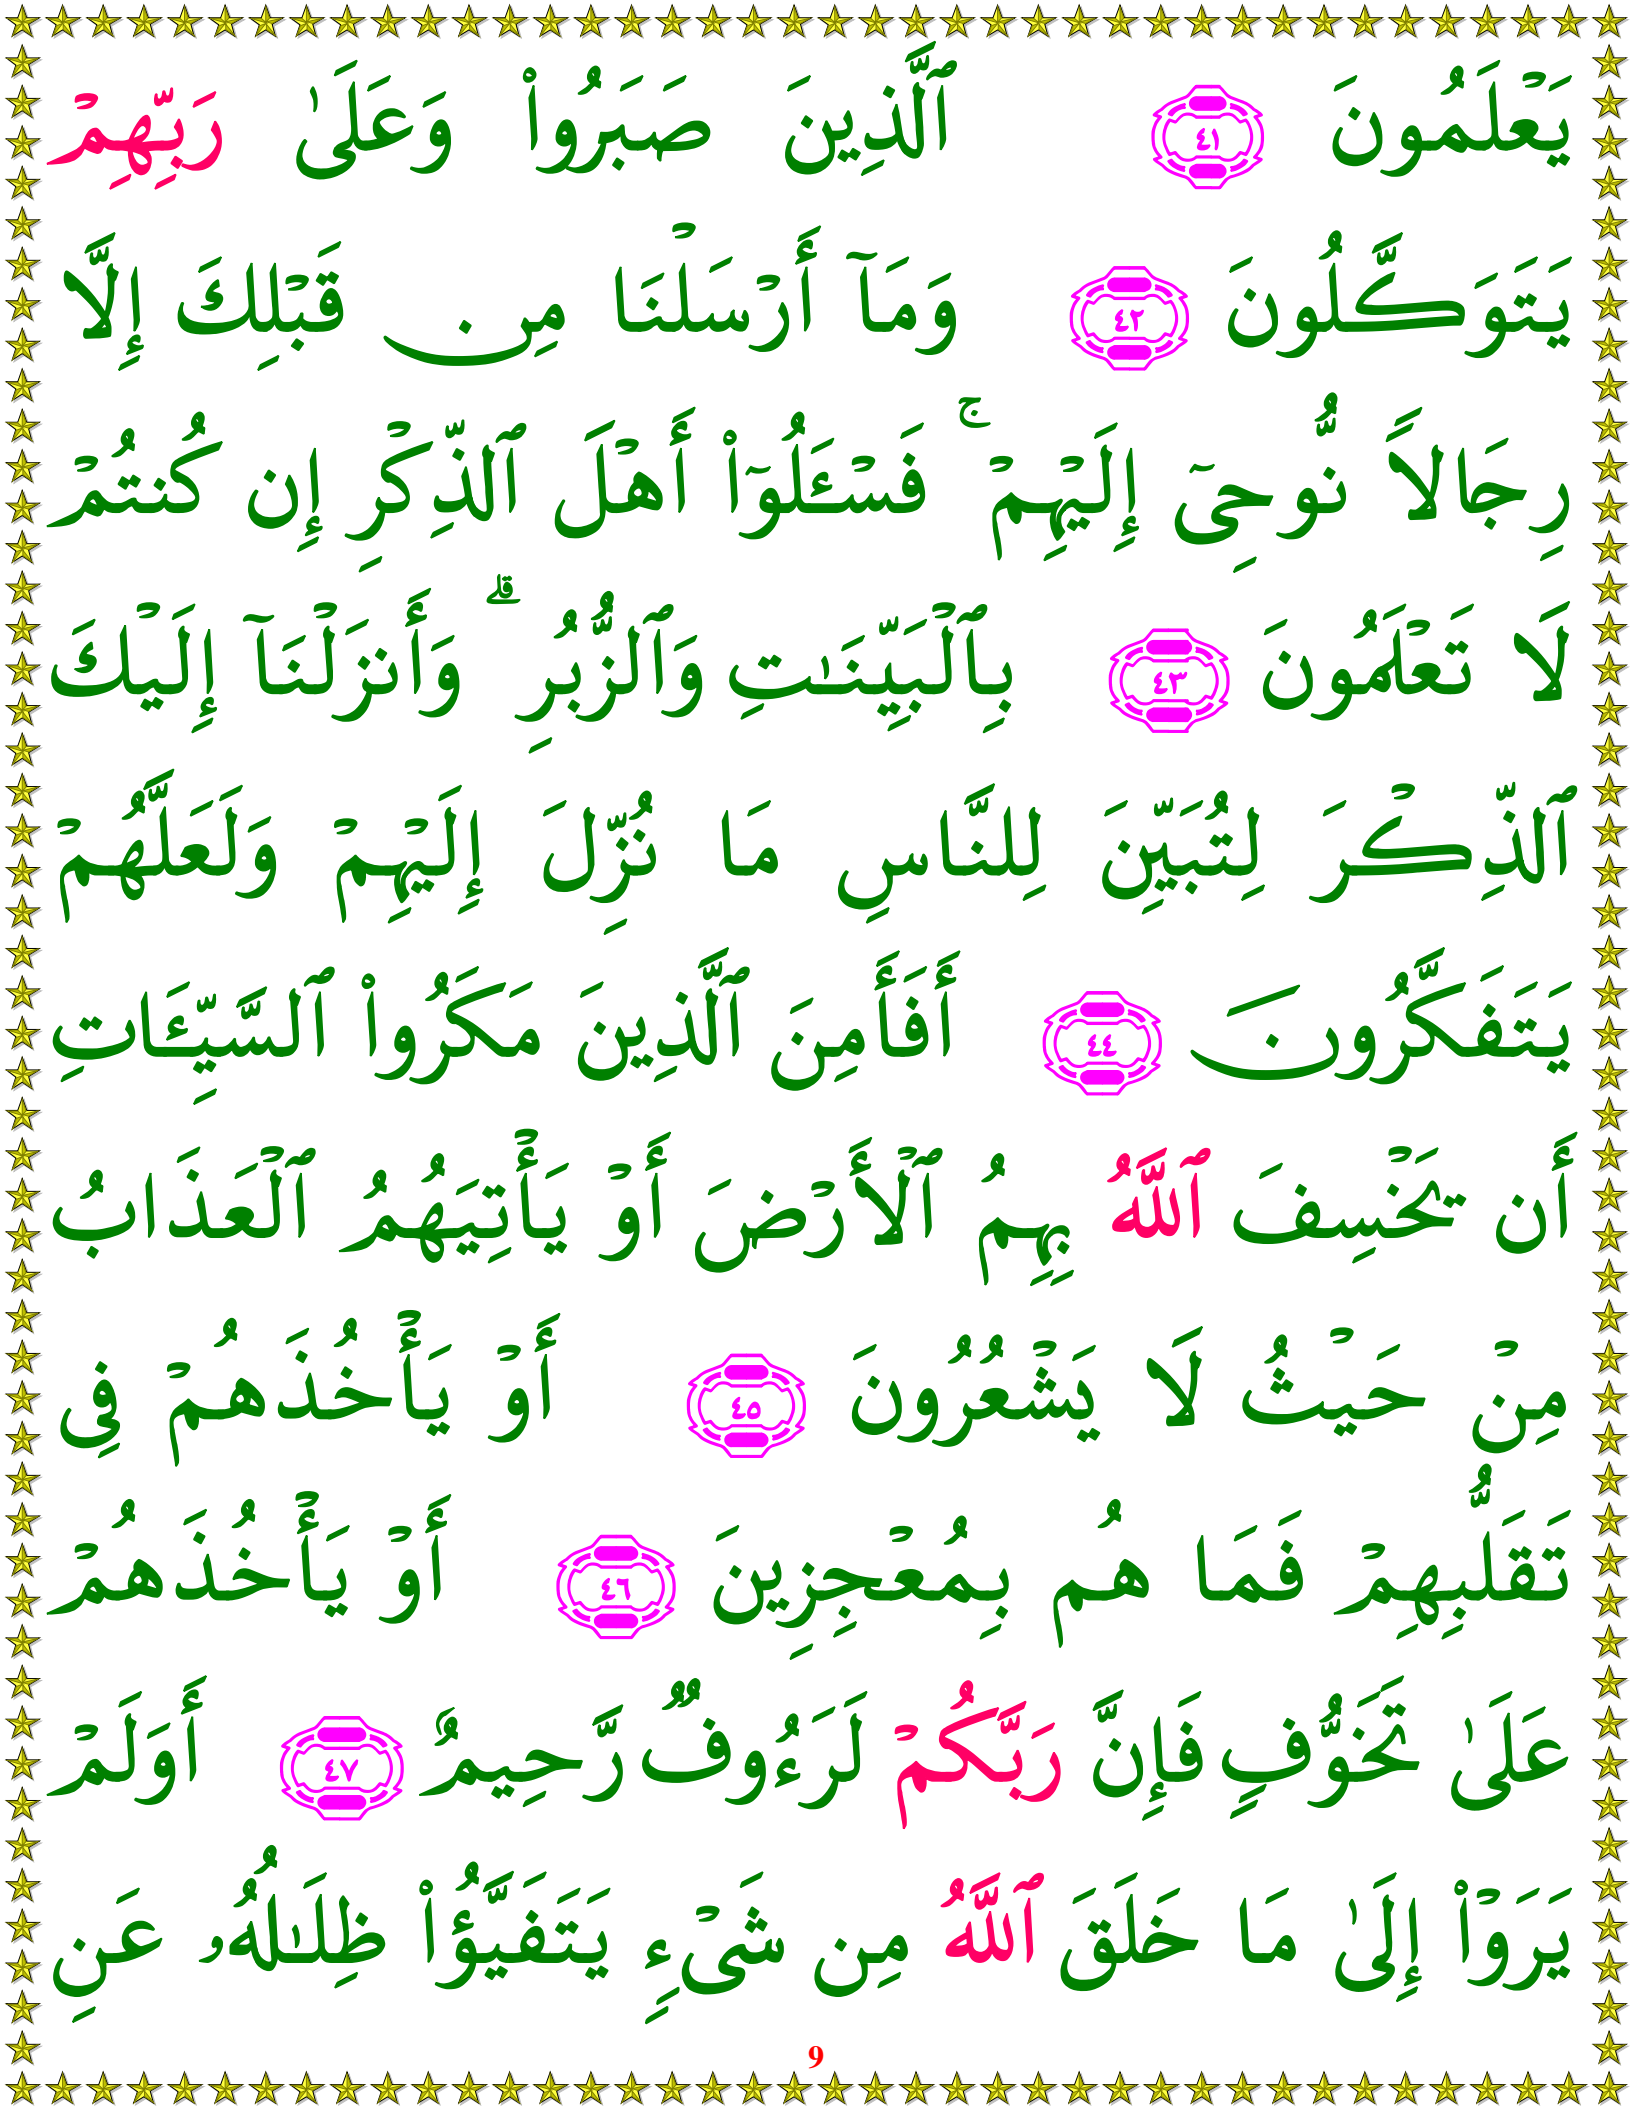 يَعْلَمُونَ ٤١ ٱلَّذِينَ صَبَرُوا۟ وَعَلَىٰ رَبِّهِمْ
يَتَوَكَّلُونَ ٤٢ وَمَآ أَرْسَلْنَا مِن قَبْلِكَ إِلَّا
رِجَالاً نُّوحِىٓ إِلَيْهِمْ ۚ فَسْـَٔلُوٓا۟ أَهْلَ ٱلذِّكْرِ إِن كُنتُمْ
لَا تَعْلَمُونَ ٤٣ بِٱلْبَيِّنَـٰتِ وَٱلزُّبُرِ ۗ وَأَنزَلْنَآ إِلَيْكَ
ٱلذِّكْرَ لِتُبَيِّنَ لِلنَّاسِ مَا نُزِّلَ إِلَيْهِمْ وَلَعَلَّهُمْ
يَتَفَكَّرُونَ ٤٤ أَفَأَمِنَ ٱلَّذِينَ مَكَرُوا۟ ٱلسَّيِّـَٔاتِ
أَن تَخْسِفَ ٱللَّهُ بِهِمُ ٱلْأَرْضَ أَوْ يَأْتِيَهُمُ ٱلْعَذَابُ
مِنْ حَيْثُ لَا يَشْعُرُونَ ٤٥ أَوْ يَأْخُذَهُمْ فِى
تَقَلُّبِهِمْ فَمَا هُم بِمُعْجِزِينَ ٤٦ أَوْ يَأْخُذَهُمْ
عَلَىٰ تَخَوُّفٍ فَإِنَّ رَبَّكُمْ لَرَءُوفٌ رَّحِيمٌ ٤٧ أَوَلَمْ
يَرَوْا۟ إِلَىٰ مَا خَلَقَ ٱللَّهُ مِن شَىْءٍ يَتَفَيَّؤُا۟ ظِلَـٰلُهُۥ عَنِ
9